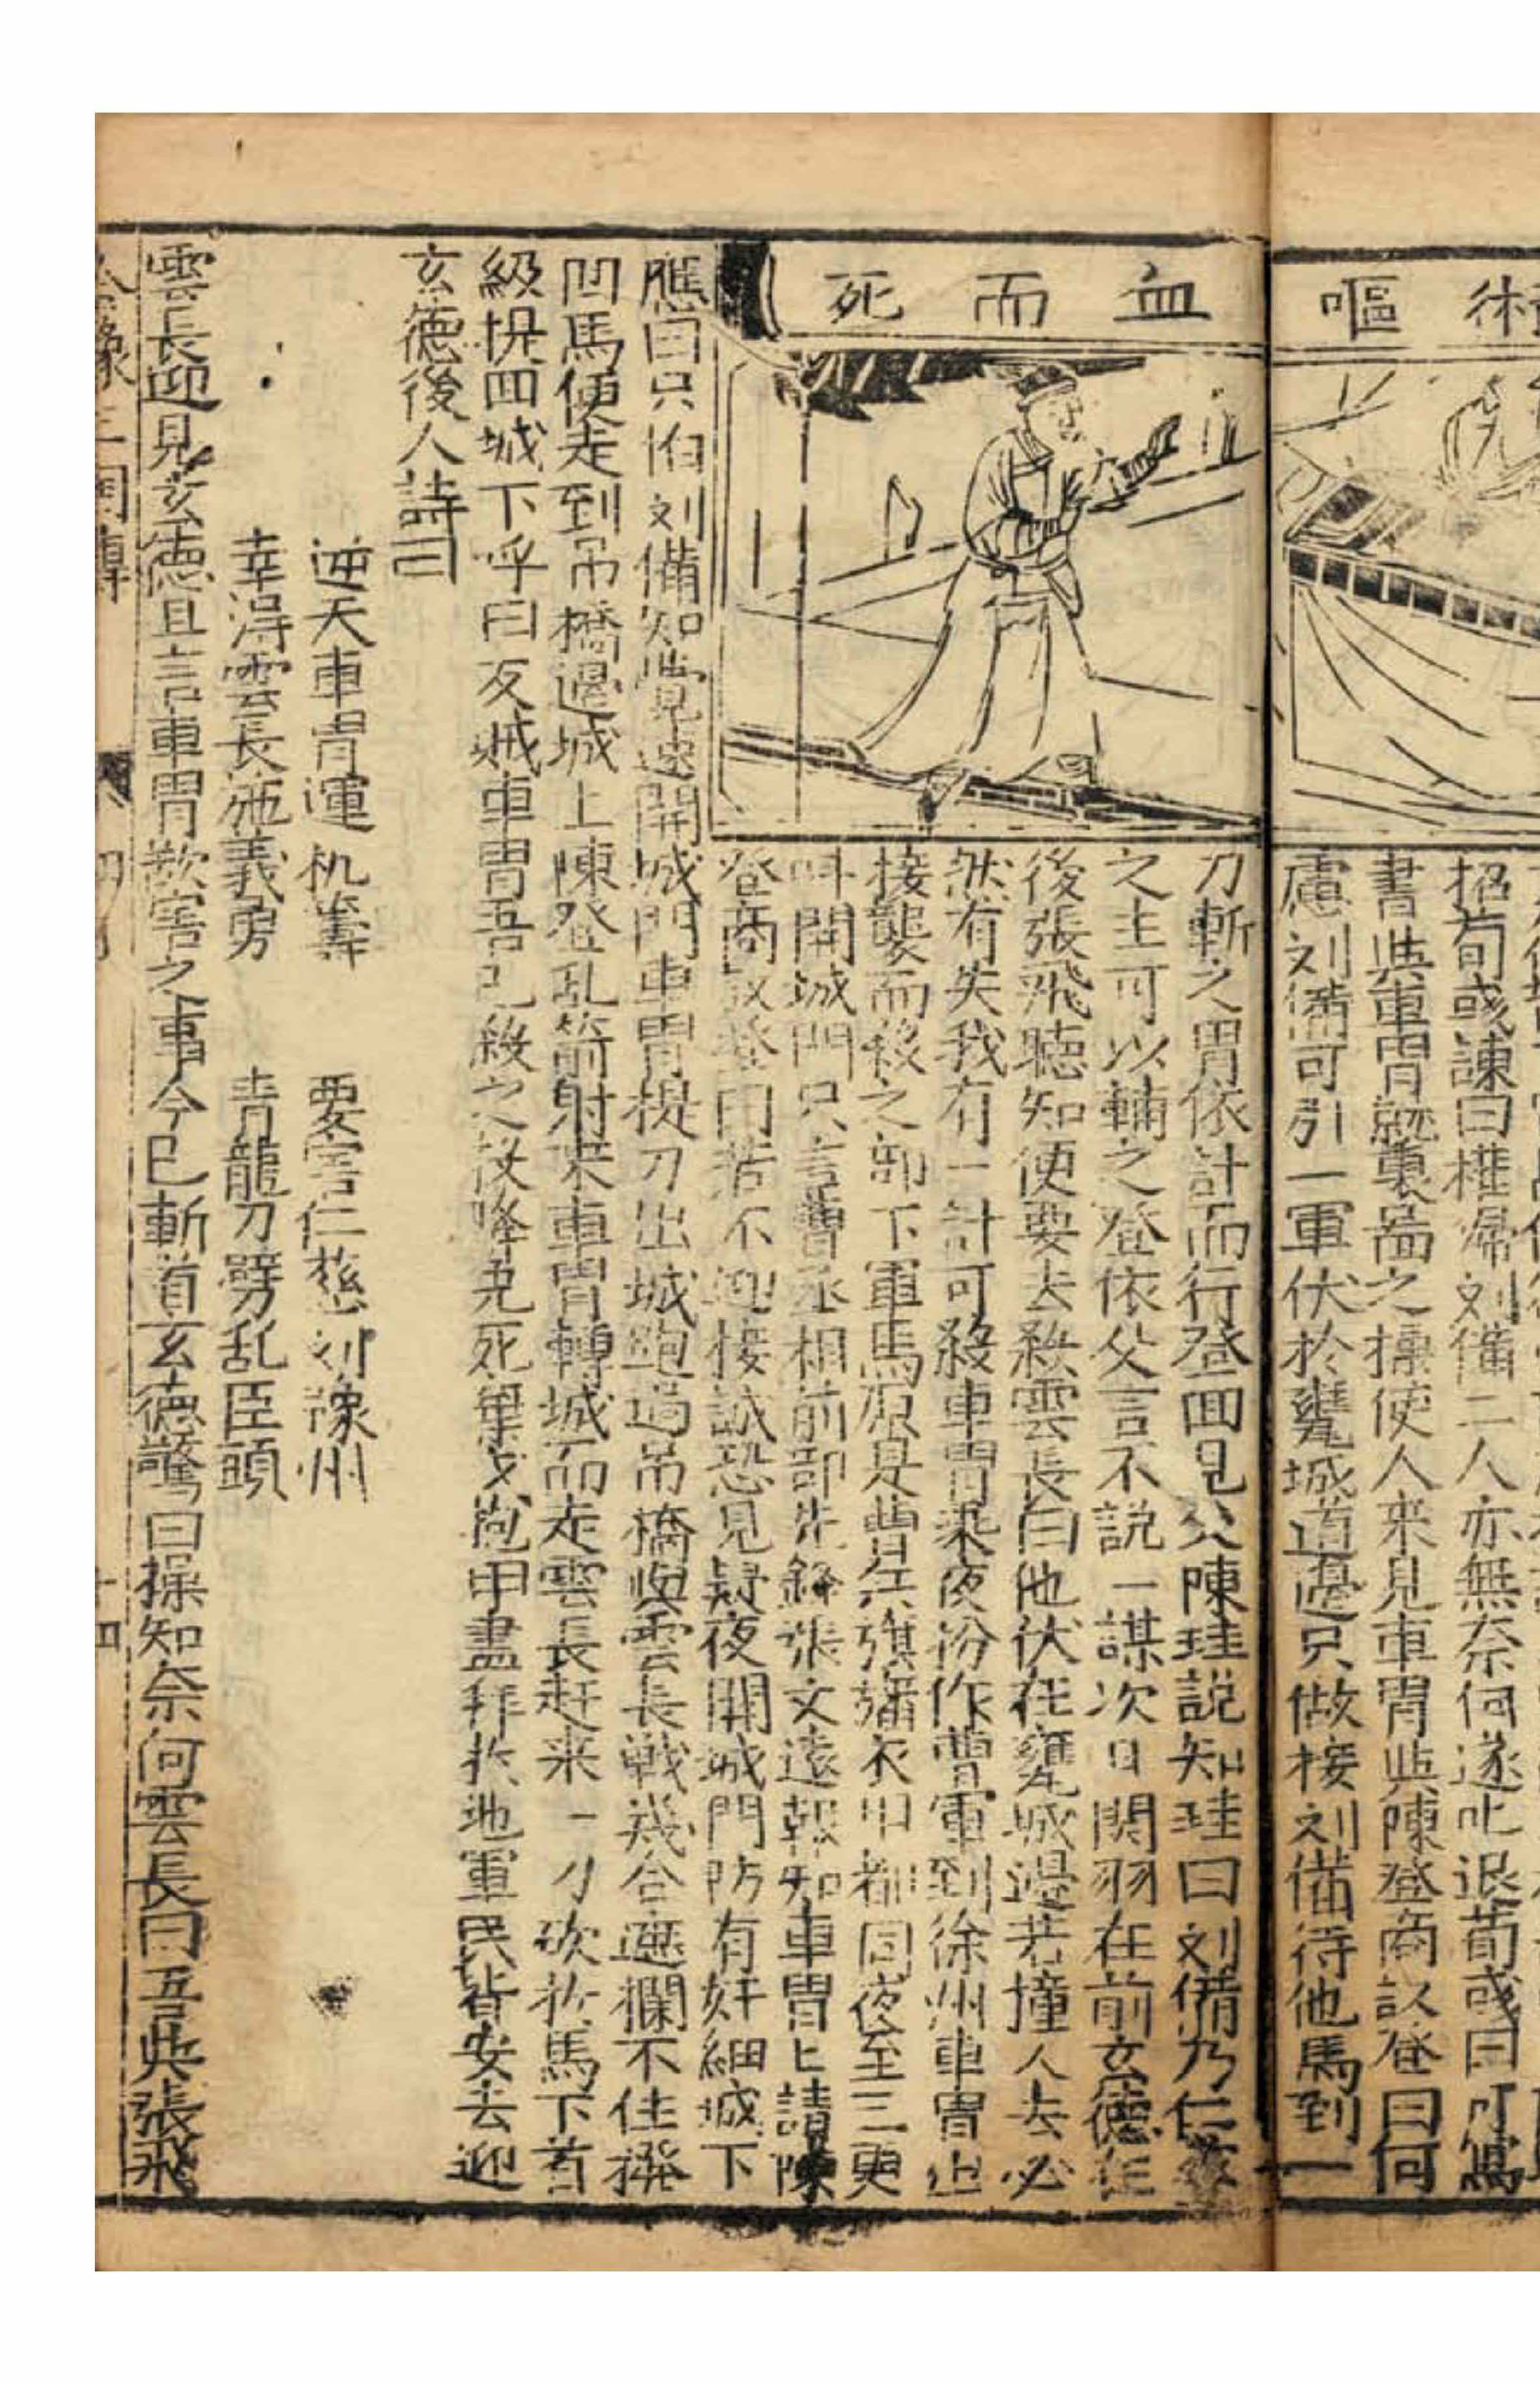 術嘔
招荀彧諫曰權歸刘備二人亦無奈何遂叱退荀彧曰可寫
書與車冑就裏啚之操使人來見車冑與陳登商议登曰何
慮刘備可引一軍伏於甕城道邉只做接刘備待他馬到一
血而死
刀斬之冑依計而行登回見父陳珪説知珪曰刘備乃仁
之主可以輔之登依父言不説一謀次日関羽在前玄德在
後張飛聴知便要去殺雲長曰他伏在甕城邉若撞人去必
然有失我有一計可殺車冑乘夜扮作曹軍到徐州車冑出
接襲而殺之部下軍馬原是曹兵旗旛衣甲都同夜至三更
叫開城門只言曹丞相前部先鋒張文遠報知車冑上請陳
登商议登曰若不迎接誠恐見疑夜開城門防有奸細城下
應曰只怕刘備知覺速開城門車冑提刀出城跑過吊橋喚雲長戦幾合遮攔不住撥
回馬便走到吊橋邉城上陳登乱箭射來車冑轉城而走雲長赶来一刀砍於馬下首
級提回城下呼曰反贼車冑吾已殺之投降免死棄戈抛甲盡拜於地軍民皆安去迎
玄德後人詩曰
逆天車冑運机籌　要害仁慈刘豫州
幸淂雲長施義勇　青龍刀劈乱臣頭
雲長迎見玄德且言車冑欺害之事今已斬首玄德驚曰操知奈何雲長曰吾與張飛
全像三国傳
十四